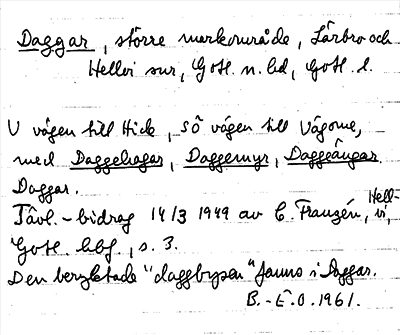 Daggar, större markområde, Lärbro och
Hellvi snr, Gotl. n. hd, Gotl. l.
V vägen till Hide, SÖ vägen till Vägome,
med Daggehagar, Daggemyr, Daggeängar.
Daggar.
Tävl.-bidrag 14/3 1949 av E. Franzén, Hellvi,
Gotl. hbf., s. 3.
Den beryktade "daggbysen" fanns i Daggar.
B.-E.O. 1961.